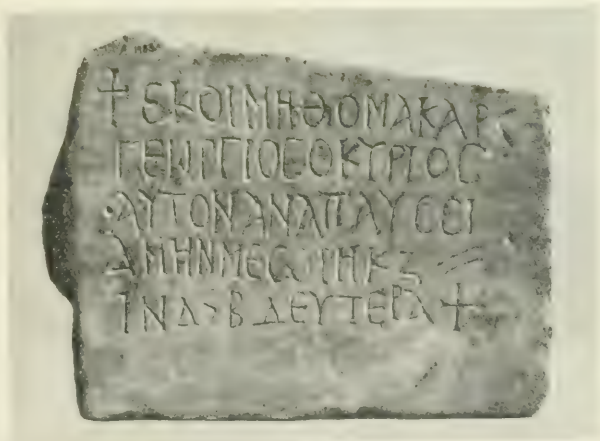 + ΕΚΟΙΜΗΘΟΜΑΚΑΡ
ΓΕΩΡΓΙΟCΟΚΥΡΙΟC
ΑΥΤΟΝΑΝΑΠΑΥCΕΙ
ΑΜΗΝΜΕCΩΡΗΚΖ
ΙΝΔSΒΔΕΥΤΕΡΑ +